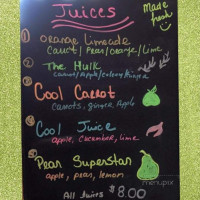 Juices
made fresh
① orange limeade
carrot/Pear/orange/lime
② The Hulk
Carrot/Apple/celery/
③ Cool Carrot
carrots, ginger, Apple
④ Cool Juice
apple, cucumber, lime
⑤ Pear Superstar
apple, pear, lemon
All Juices $8.00
menupix